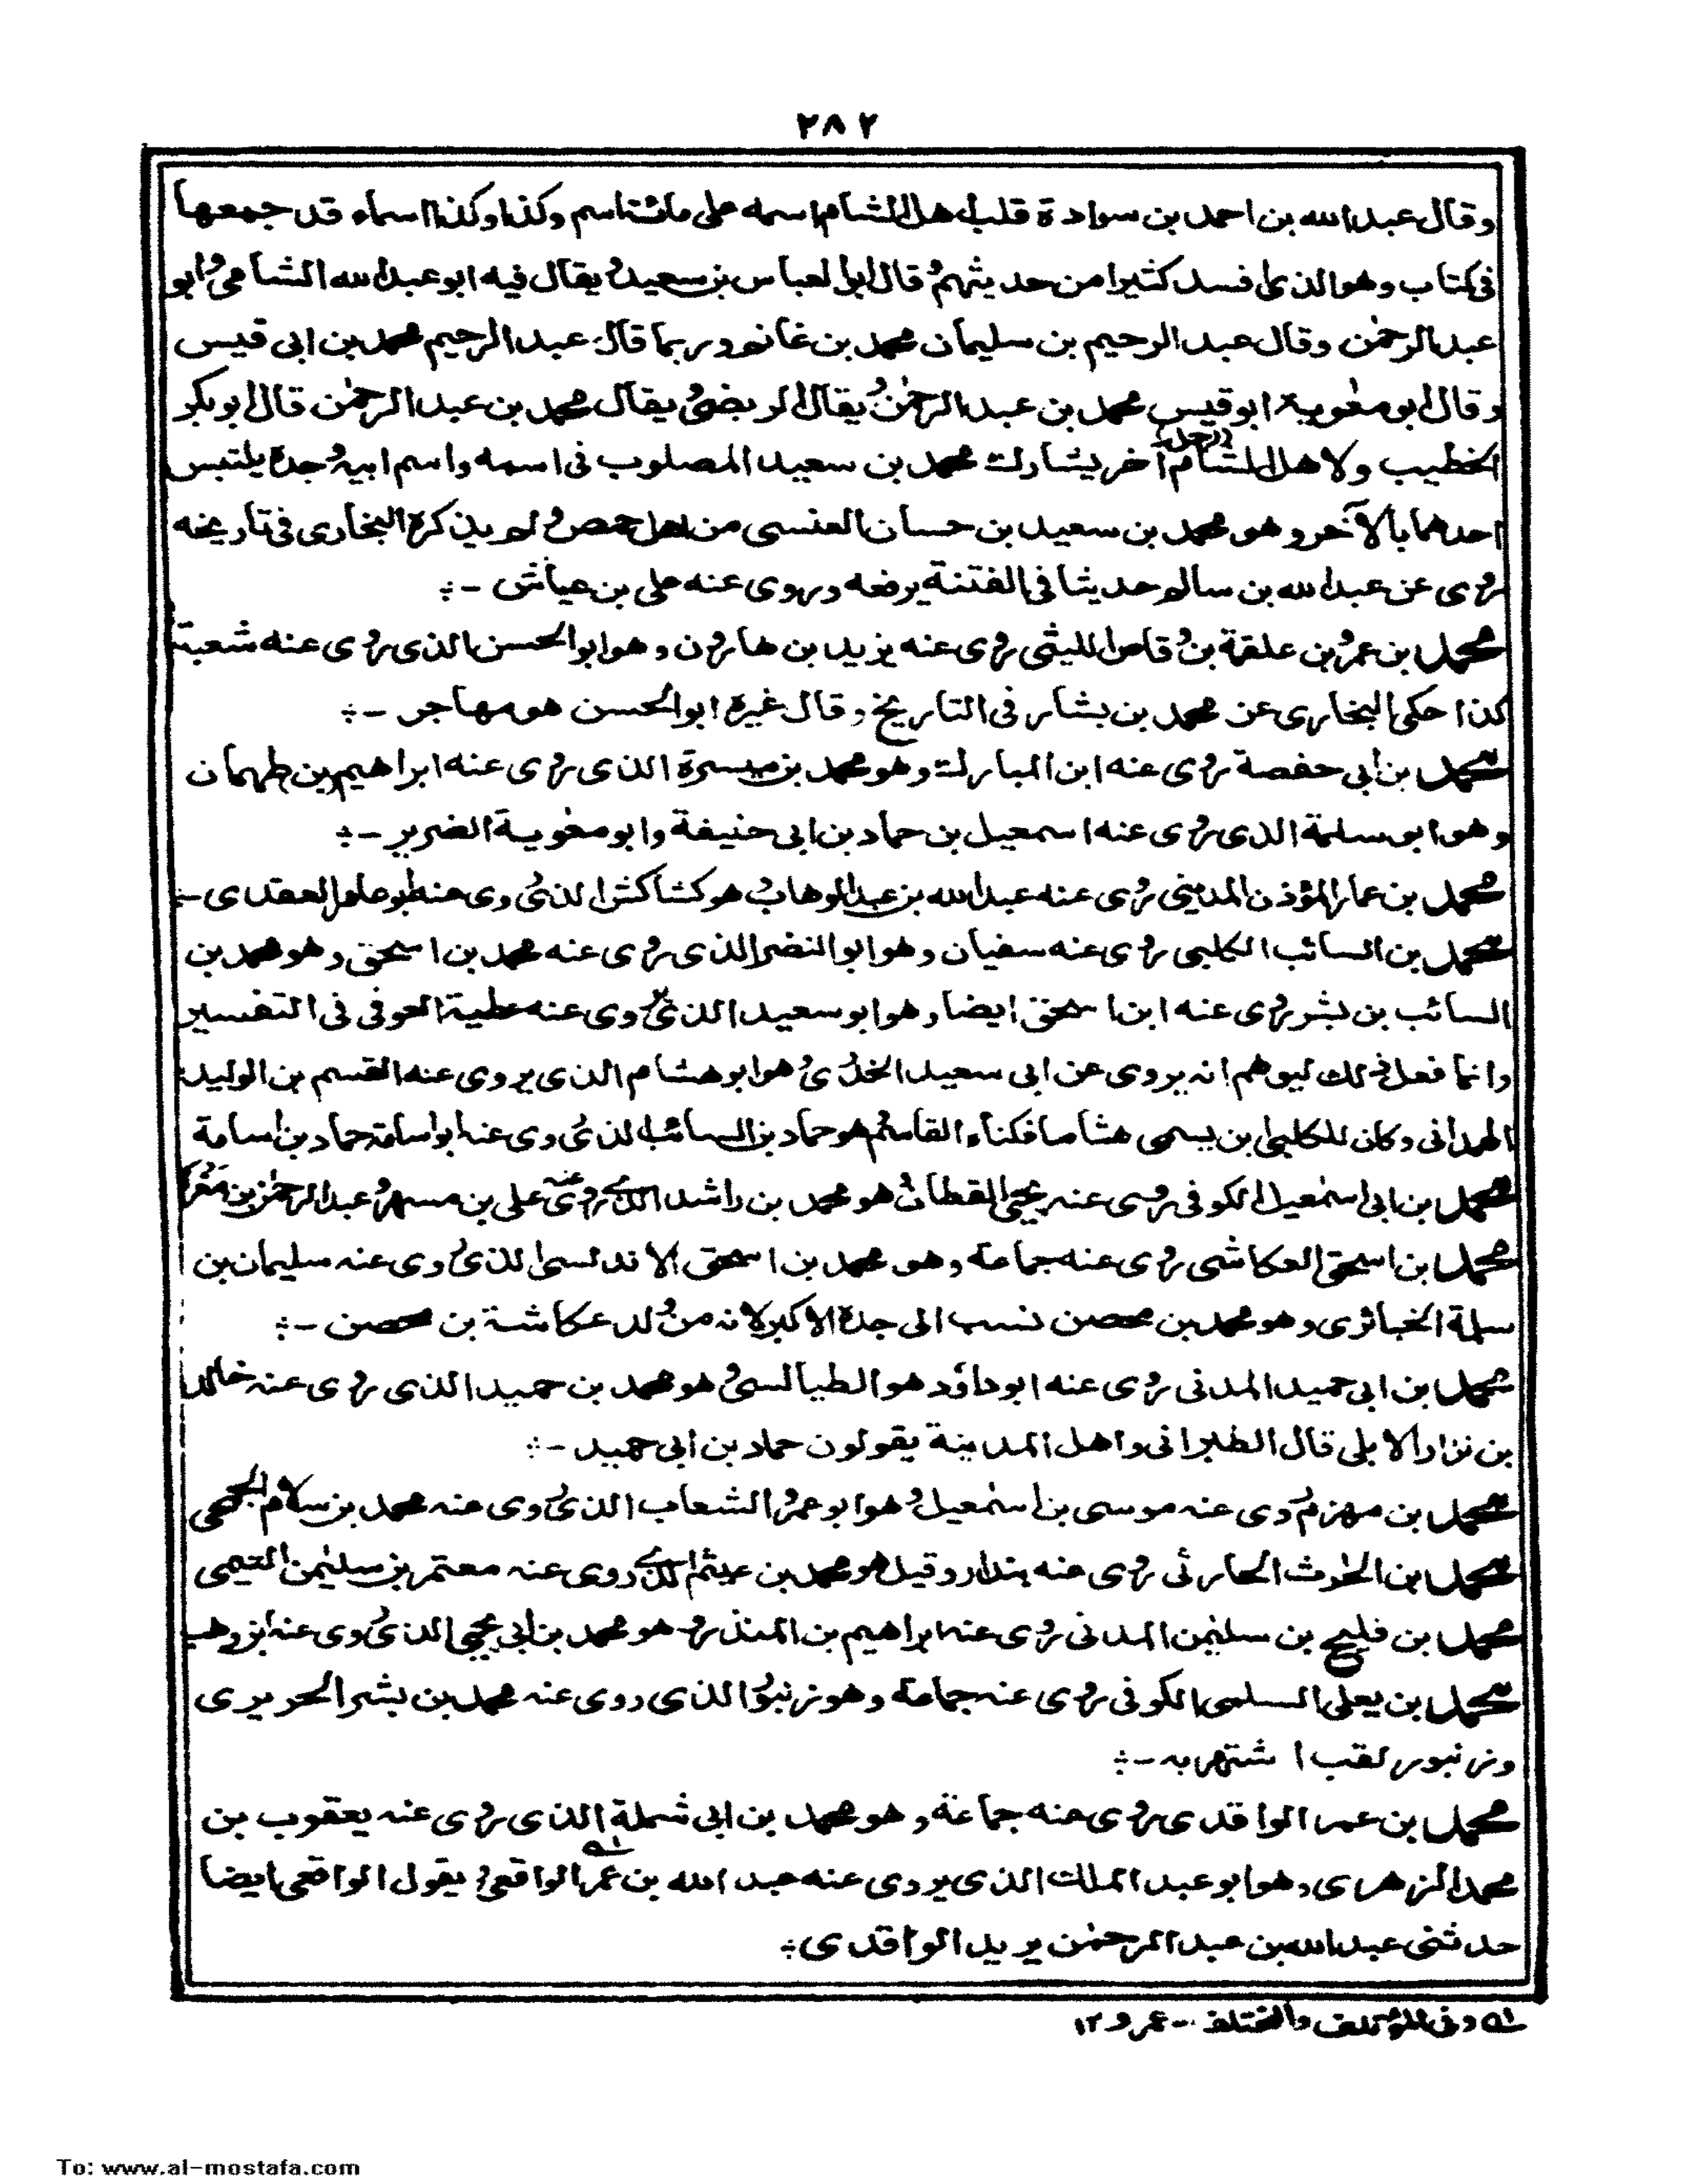 ٢٨٢
وقال عبدالله بن احمد بن سوادة قلب اهل الشام اسمه على مائة اسم وكذا وكذا اسماء قد جمعها
فى كتاب وهو الذى افسد كثيرا من حديثهم وقال ابو العباس بن سعيد ويقال فيه ابو عبدالله الشامى وابو
عبدالرحمٰن وقال عبد الرحيم بن سليمان محمد بن غانم وربما قال عبد الرحيم محمد بن ابى قيس
وقال ابو معٰوية ابو قيس محمد بن عبدالرحمٰن ويقال الربضى ويقال محمد بن عبد الرحمٰن قال ابوبكر
الخطيب ولاهل الشام (رجل) آخر يشارك محمد بن سعيد المصلوب فى اسمه واسم ابيه وجدة يلتبس
احدهما بالآخر وهو محمد بن سعيد بن حسان العنسى من اهل حمص ولم يذكرة البخارى فى تاريخه
روى عن عبدالله بن سالم حديثا فى الفتنة يرفعه وروى عنه على بن عياش -ः
محمد بن عمرو بن علقمة بن وقاص الليثى روى عنه يزيد بن هارون وهو ابو الحسن الذى روى عنه شعبة
كذا حكى البخارى عن محمد بن بشار فى التاريخ وقال غيرة ابو الحسن هو مهاجر -ः
محمد بن ابى حفصة روى عنه ابن المبارك وهو محمد بن ميسرة الذى روى عنه ابراهيم بن طهمان
وهو ابو سلمة الذى روى عنه اسمعيل بن حماد بن ابى حنيفة وابو معٰوية الضرير -ः
محمد بن عمار المؤذن المدينى روى عنه عبدالله بن عبدالوهاب وهو كشاكش الذى روى عنه ابو عامر العقدى -ः
محمد بن السائب الكلبى روى عنه سفيان وهو ابو النضر الذى روى عنه محمد بن اسحٰق وهو محمد بن
السائب بن بشر روى عنه ابن اسحٰق ايضا وهو ابو سعيد الذى روى عنه عطية العوفى فى التفسير
وانما فعل ذلك ليوهم انه يروى عن ابى سعيد الخدرى وهو ابو هشام الذى يروى عنه القسم بن الوليد
الهمدانى وكان للكلبى ابن يسمى هشاما فكناه القاسم وهو حماد بن السائب الذى روى عنه ابو اسامة حماد بن اسامة
محمد بن ابى اسمٰعيل الكوفى روى عنه يحيى القطان وهو محمد بن راشد الذى روى عنه على بن مسهر وعبدالرحمٰن بن مغرا
محمد بن اسحٰق العكاشى روى عنه جماعة وهو محمد بن اسحٰق الاندلسى الذى روى عنه سليمان بن
سلمة الخبائرى وهو محمد بن محصن نسب الى جدة الاكبر لانه من ولد عكاشة بن محصن -ः
محمد بن ابى حميد المدنى روى عنه ابو داؤد هو الطيالسى وهو محمد بن حميد الذى روى عنه خالد
بن نزار الابلى قال الطبرانى واهل المدينة يقولون حماد بن ابى حميد -ः
محمد بن مهزم روى عنه موسى بن اسمٰعيل وهو ابو عمرو الشعاب الذى روى عنه محمد بن سلام الجمحى
محمد بن الحٰرث الحارثى روى عنه بندار وقيل هو محمد بن عيثم الذى روى عنه معتمر بن سليمٰن التيمى
محمد بن فليح بن سليمٰن المدنى روى عنه ابراهيم بن المنذر وهو محمد بن ابى يحيى الذى روى عنه ابن وهب
محمد بن يعلى السلمى الكوفى روى عنه جماعة وهو زنبور الذى روى عنه محمد بن بشر الحريرى
وزنبور لقب اشتهر به -ः
محمد بن عمر الواقدى روى عنه جماعة وهو محمد بن ابى شملة الذى روى عنه يعقوب بن
محمد الزهرى وهو ابو عبد الملك الذى يروى عنه عبد الله بن عمر له الواقعى ويقول الواقعى ايضا
حدثنى عبدالله بن عبدالرحمٰن يريد الواقدى ः
له وفى المؤتلف والمختلف - عمرو ١٢
To: www.al-mostafa.com